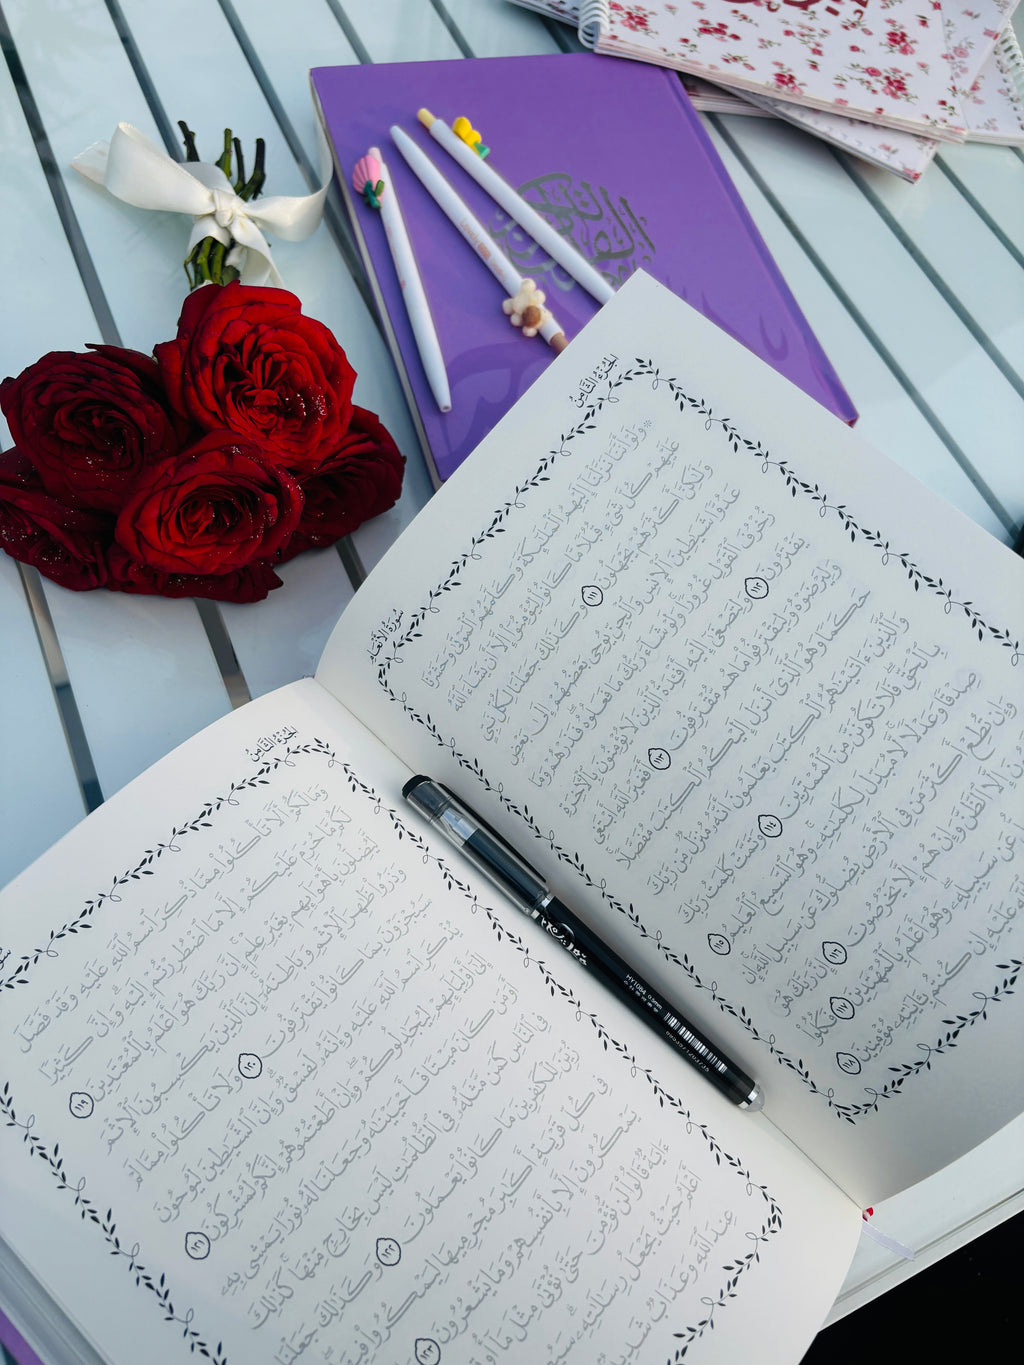 الجزء الثامن
سورة الأنعام
۞ وَلَوْ أَنَّنَا نَزَّلْنَآ إِلَيْهِمُ ٱلْمَلَٰٓئِكَةَ وَكَلَّمَهُمُ ٱلْمَوْتَىٰ وَحَشَرْنَا
عَلَيْهِمْ كُلَّ شَىْءٍ قُبُلًا مَّا كَانُوا۟ لِيُؤْمِنُوٓا۟ إِلَّآ أَن يَشَآءَ ٱللَّهُ
وَلَٰكِنَّ أَكْثَرَهُمْ يَجْهَلُونَ ١١١ وَكَذَٰلِكَ جَعَلْنَا لِكُلِّ نَبِىٍّ
عَدُوًّا شَيَٰطِينَ ٱلْإِنسِ وَٱلْجِنِّ يُوحِى بَعْضُهُمْ إِلَىٰ بَعْضٍ
زُخْرُفَ ٱلْقَوْلِ غُرُورًا ۚ وَلَوْ شَآءَ رَبُّكَ مَا فَعَلُوهُ ۖ فَذَرْهُمْ وَمَا
يَفْتَرُونَ ١١٢ وَلِتَصْغَىٰٓ إِلَيْهِ أَفْـِٔدَةُ ٱلَّذِينَ لَا يُؤْمِنُونَ بِٱلْءَاخِرَةِ
وَلِيَرْضَوْهُ وَلِيَقْتَرِفُوا۟ مَا هُم مُّقْتَرِفُونَ ١١٣ أَفَغَيْرَ ٱللَّهِ أَبْتَغِى
حَكَمًا وَهُوَ ٱلَّذِىٓ أَنزَلَ إِلَيْكُمُ ٱلْكِتَٰبَ مُفَصَّلًا ۚ
وَٱلَّذِينَ ءَاتَيْنَٰهُمُ ٱلْكِتَٰبَ يَعْلَمُونَ أَنَّهُۥ مُنَزَّلٌ مِّن رَّبِّكَ
بِٱلْحَقِّ ۖ فَلَا تَكُونَنَّ مِنَ ٱلْمُمْتَرِينَ ١١٤ وَتَمَّتْ كَلِمَتُ رَبِّكَ
صِدْقًا وَعَدْلًا ۚ لَّا مُبَدِّلَ لِكَلِمَٰتِهِۦ ۚ وَهُوَ ٱلسَّمِيعُ ٱلْعَلِيمُ ١١٥
وَإِن تُطِعْ أَكْثَرَ مَن فِى ٱلْأَرْضِ يُضِلُّوكَ عَن سَبِيلِ ٱللَّهِ ۚ إِن
إِلَّا ٱلظَّنَّ وَإِنْ هُمْ إِلَّا يَخْرُصُونَ ١١٦ إِنَّ رَبَّكَ هُوَ
عَن سَبِيلِهِۦ ۖ وَهُوَ أَعْلَمُ بِٱلْمُهْتَدِينَ ١١٧ فَكُلُوا۟
عَلَيْهِ إِن كُنتُم بِـَٔايَٰتِهِۦ مُؤْمِنِينَ ١١٨
الجزء الثامن
وَمَا لَكُمْ أَلَّا تَأْكُلُوا۟ مِمَّا ذُكِرَ ٱسْمُ ٱللَّهِ عَلَيْهِ وَقَدْ فَصَّلَ
لَكُم مَّا حَرَّمَ عَلَيْكُمْ إِلَّا مَا ٱضْطُرِرْتُمْ إِلَيْهِ ۗ وَإِنَّ كَثِيرًا
لَّيُضِلُّونَ بِأَهْوَآئِهِم بِغَيْرِ عِلْمٍ ۗ إِنَّ رَبَّكَ هُوَ أَعْلَمُ بِٱلْمُعْتَدِينَ ١١٩
وَذَرُوا۟ ظَٰهِرَ ٱلْإِثْمِ وَبَاطِنَهُۥٓ ۚ إِنَّ ٱلَّذِينَ يَكْسِبُونَ ٱلْإِثْمَ
سَيُجْزَوْنَ بِمَا كَانُوا۟ يَقْتَرِفُونَ ١٢٠ وَلَا تَأْكُلُوا۟ مِمَّا لَمْ
يُذْكَرِ ٱسْمُ ٱللَّهِ عَلَيْهِ وَإِنَّهُۥ لَفِسْقٌ ۗ وَإِنَّ ٱلشَّيَٰطِينَ لَيُوحُونَ
إِلَىٰٓ أَوْلِيَآئِهِمْ لِيُجَٰدِلُوكُمْ ۖ وَإِنْ أَطَعْتُمُوهُمْ إِنَّكُمْ لَمُشْرِكُونَ ١٢١
أَوَمَن كَانَ مَيْتًا فَأَحْيَيْنَٰهُ وَجَعَلْنَا لَهُۥ نُورًا يَمْشِى بِهِۦ
فِى ٱلنَّاسِ كَمَن مَّثَلُهُۥ فِى ٱلظُّلُمَٰتِ لَيْسَ بِخَارِجٍ مِّنْهَا ۚ كَذَٰلِكَ
زُيِّنَ لِلْكَٰفِرِينَ مَا كَانُوا۟ يَعْمَلُونَ ١٢٢ وَكَذَٰلِكَ جَعَلْنَا
فِى كُلِّ قَرْيَةٍ أَكَٰبِرَ مُجْرِمِيهَا لِيَمْكُرُوا۟ فِيهَا
يَمْكُرُونَ إِلَّا بِأَنفُسِهِمْ وَمَا يَشْعُرُونَ ١٢٣
ءَايَةٌ قَالُوا۟ لَن نُّؤْمِنَ حَتَّىٰ نُؤْتَىٰ مِثْلَ مَآ
أَعْلَمُ حَيْثُ يَجْعَلُ رِسَالَتَهُۥ ۗ
عِندَ ٱللَّهِ وَعَذَابٌ شَدِيدٌۢ
HY1084 0.5mm